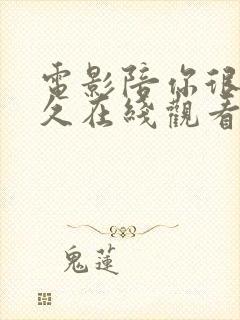 電影陪你很
久在綫觀看
鬼蓮